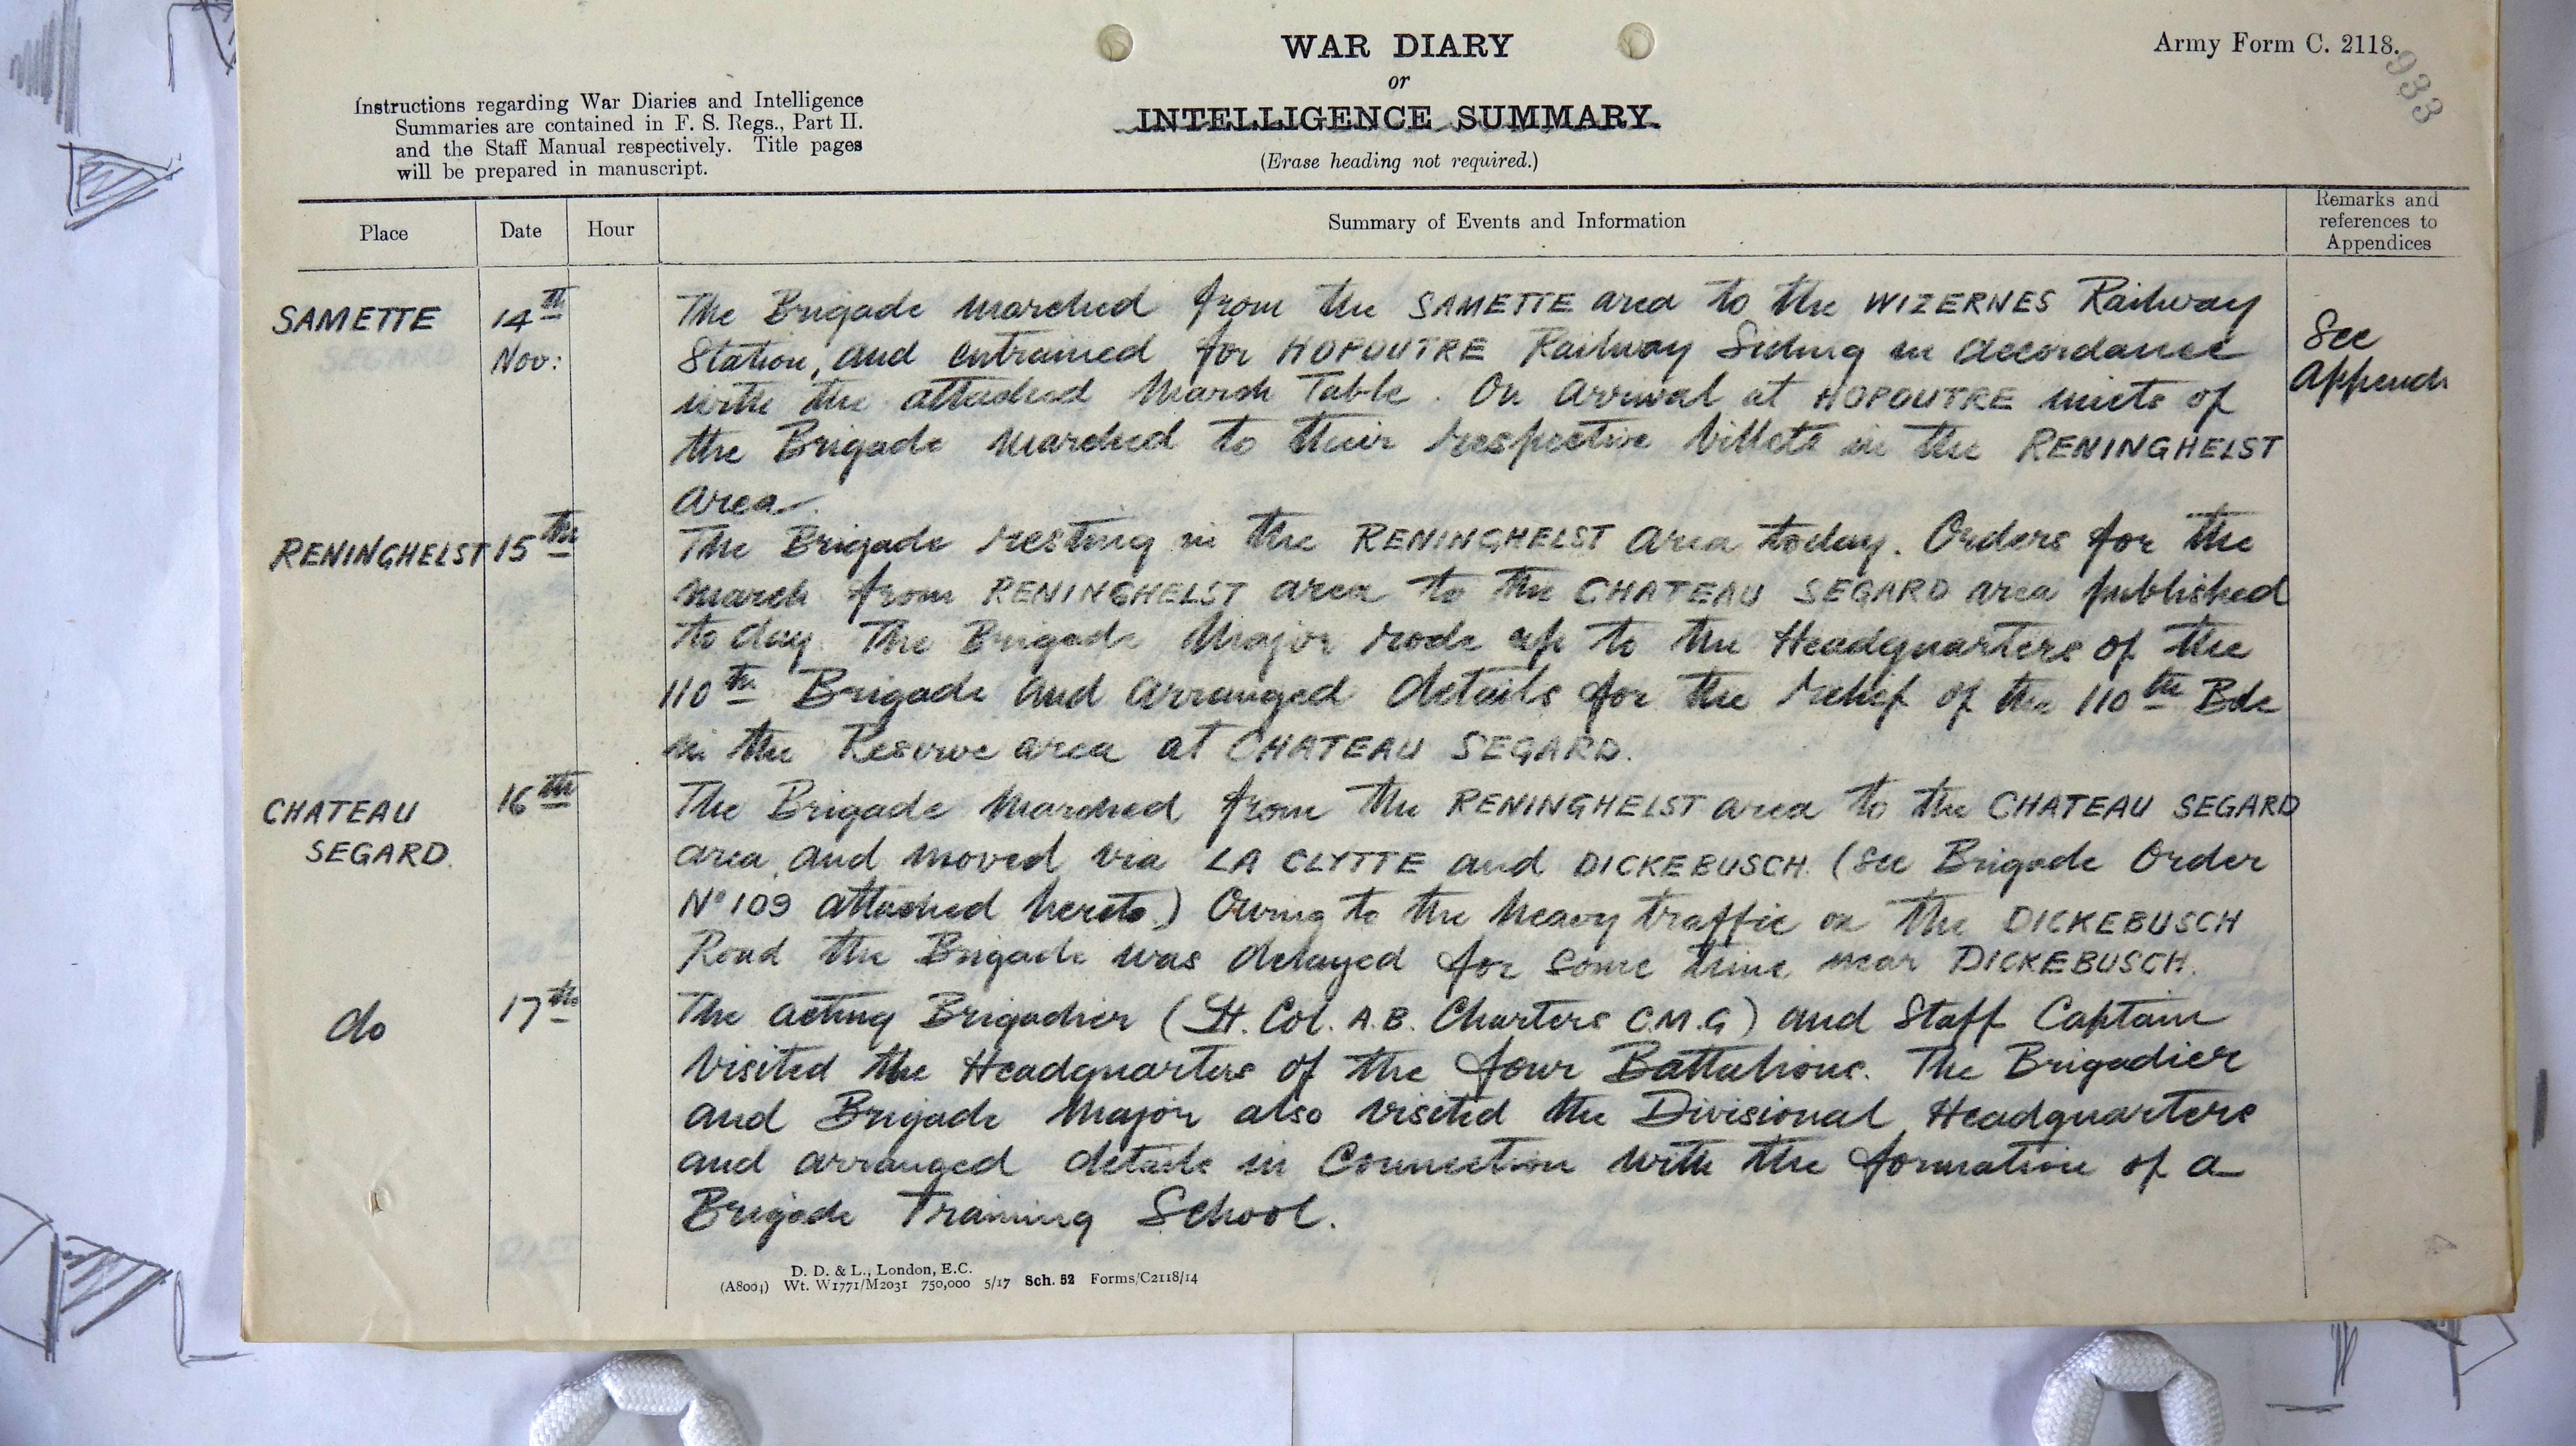 WAR DIARY
or
INTELLIGENCE SUMMARY.
(Erase heading not required.)
Army Form C. 2118.
933
Instructions regarding War Diaries and Intelligence
Summaries are contained in F. S. Regs., Part II.
and the Staff Manual respectively. Title pages
will be prepared in manuscript.
Place Date Hour Summary of Events and Information Remarks and references to Appendices
SAMETTE 14th Nov: The Brigade marched from the SAMETTE area to the WIZERNES Railway
Station, and entrained for HOPOUTRE Railway Siding in accordance
with the attached March Table. On arrival at HOPOUTRE units of
the Brigade marched to their respective billets in the RENINGHELST
area.
See
Appendi
RENINGHELST 15th The Brigade resting in the RENINGHELST area today. Orders for the
march from RENINGHELST area to the CHATEAU SEGARD area published
to day. The Brigade Major rode up to the Headquarters of the
110th Brigade and arranged details for the relief of the 110th Bde
in the Reserve area at CHATEAU SEGARD.
CHATEAU SEGARD. 16th The Brigade marched from the RENINGHELST area to the CHATEAU SEGARD
area, and moved via LA CLYTTE and DICKEBUSCH. (See Brigade Order
No 109 attached hereto.) Owing to the heavy traffic on the DICKEBUSCH
Road the Brigade was delayed for some time near DICKEBUSCH.
do 17th The acting Brigadier (Lt. Col. A.B. Charters C.M.G) and Staff Captain
visited the Headquarters of the four Battalions. The Brigadier
and Brigade Major also visited the Divisional Headquarters
and arranged details in connection with the formation of a
Brigade Training School.
D. D. & L., London, E.C.
(A8004) Wt. W1771/M2031 750,000 5/17 Sch. 52 Forms/C2118/14